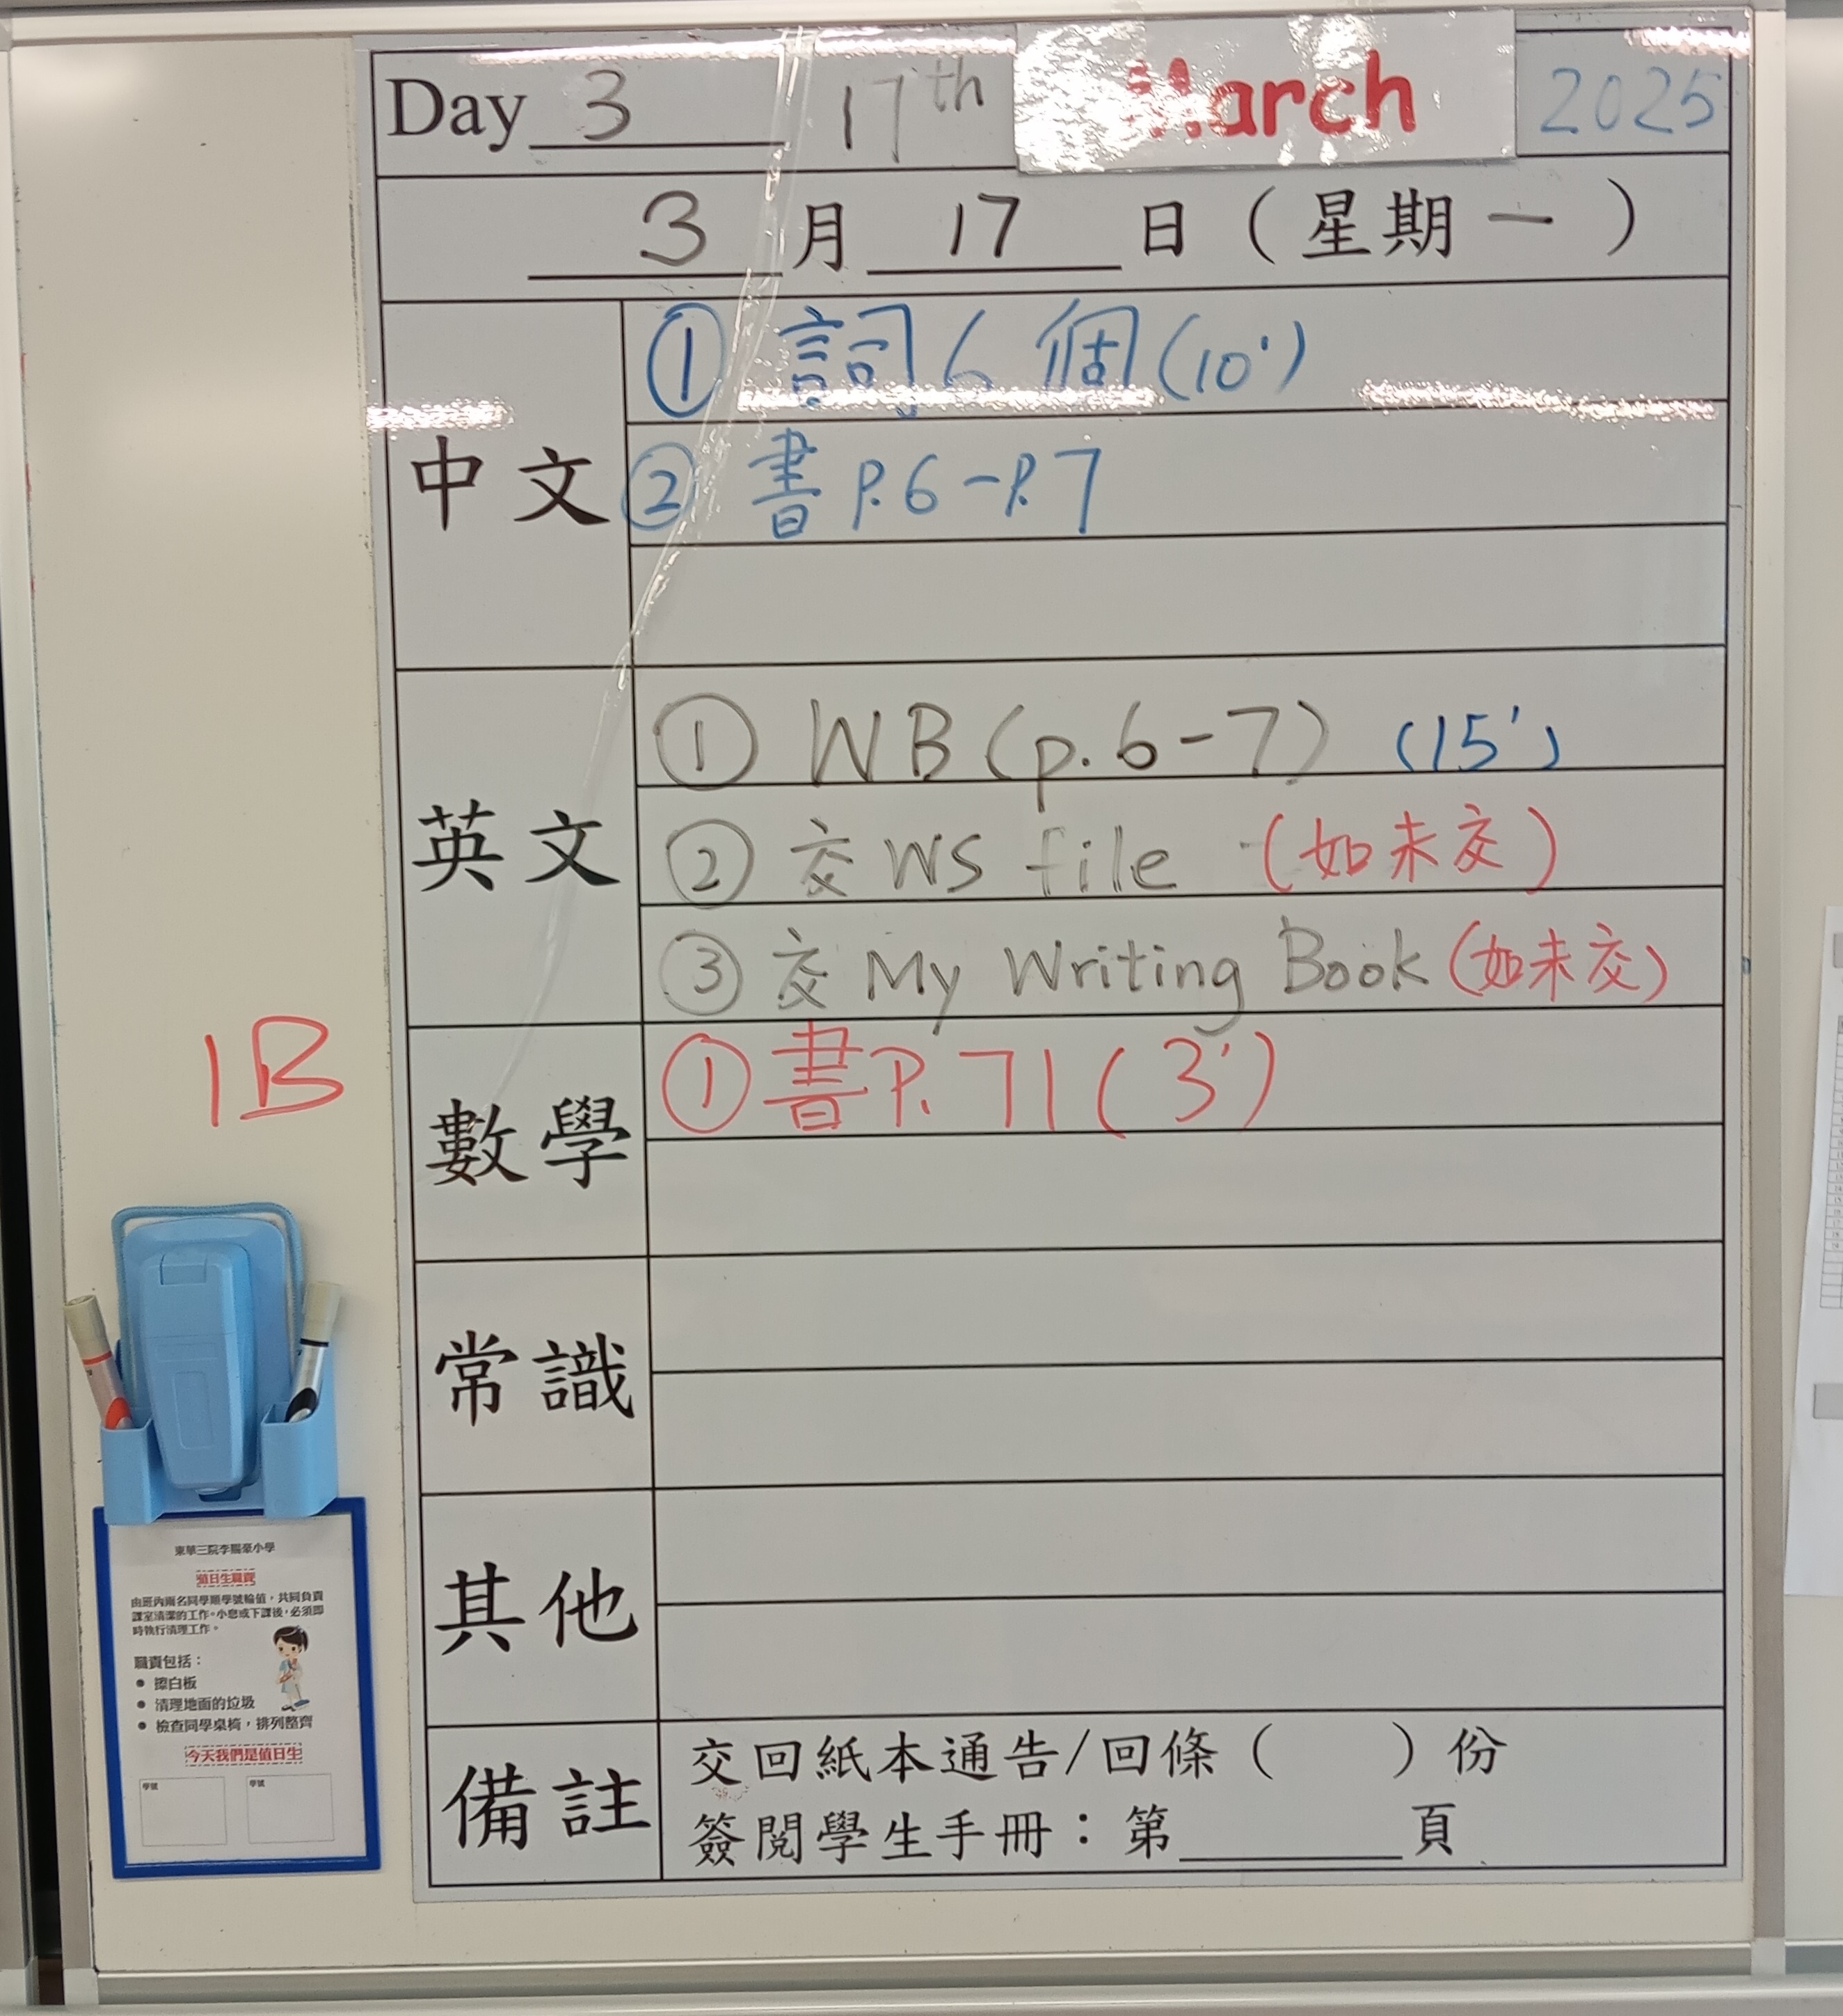 Day 3 17th March 2025
3 月 17 日 ( 星期 一 )
中文
① 詞 6 個 (10')
② 書 P.6 - P.7
英文
① WB (p.6-7) (15')
② 交 WS file (如未交)
③ 交 My Writing Book (如未交)
數學
① 書 P.71 (3')
常識
其他
備註
交回紙本通告/回條 ( ) 份
簽閱學生手冊：第______頁
1B
東華三院李賜豪小學
值日生職責
由班內兩名同學順學號輪值，共同負責
課室清潔的工作。小息或下課後，必須即
時執行清理工作。
職責包括：
● 擦白板
● 清理地面的垃圾
● 檢查同學桌椅，排列整齊
今天我們是值日生
學號 學號